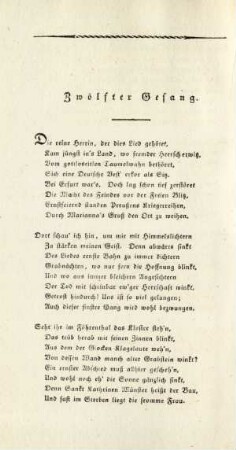 Zwölfter Gesang.
Die reine Herrin, der dies Lied gehöret,
Kam jüngst in's Land, wo fremder Herrscherwitz,
Vom gottverhaßten Taumelwahn bethöret,
Sich eine Deutsche Vest' erkor als Sitz.
Bei Erfurt war's. Doch lag schon tief zerstöret
Die Macht des Feindes vor der Freien Blitz,
Ernstfeiernd standen Preußens Kriegerreihen,
Durch Marianna's Gruß den Ort zu weihen.
Dort schau' ich hin, um mir mit Himmelslichtern
Zu stärken meinen Geist. Denn abwärts sinkt
Des Liedes ernste Bahn zu immer dichtern
Grabnächten, wo nur fern die Hoffnung blinkt,
Und wo aus immer bleichern Angesichtern
Der Tod mit scheinbar ew'ger Herrschaft winkt,
Getrost hindurch! Uns ist so viel gelungen;
Auch dieser finster Gang wird wohl bezwungen.
Seht ihr im Föhrenthal das Kloster stehn,
Das trüb herab mit seinen Zinnen blinkt,
Aus dem der Glocken Klagelaute wehn,
Von dessen Wand manch alter Grabstein winkt?
Ein ernster Abschied muß allhier geschehn,
Und wohl noch eh' die Sonne gänzlich sinkt,
Denn Sankt Kathrinen Münster heißt der Bau,
Und sast im Sterben liegt die fromme Frau.